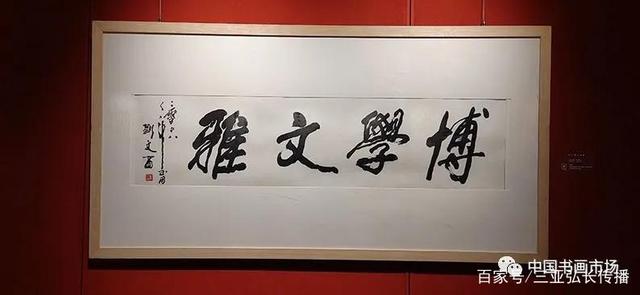 博學文雅
二零一八
刘文西
中国书画市场
百家号/三亚弘长传播